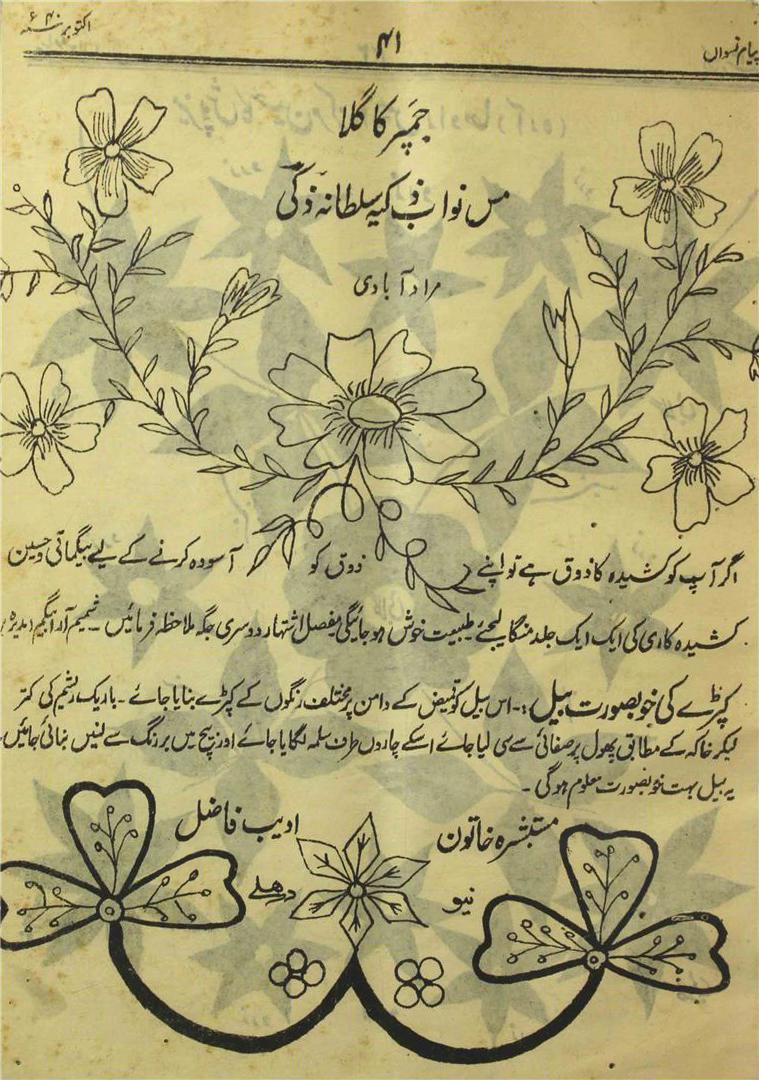 پیام نسواں
۴۱
اکتوبر سنہ ۴۰ ء
جمپر کا گلا
مس نواب ذکیہ سلطانہ ذکی
مراد آبادی
اگر آپ کو کشیدہ کا ذوق ہے تو اپنے ذوق کو آسودہ کرنے کے لیے بیگماتی و حسین
کشیدہ کاری کی ایک ایک جلد منگا لیجئے۔ طبیعت خوش ہو جائیگی مفصل اشتہار دوسری جگہ ملاحظہ فرمائیں ۔ شمیم آرا بیگم (مدیرہ)
کپڑے کی خوبصورت بیل :۔ اس بیل کو قمیض کے دامن پر مختلف رنگوں کے کپڑے بنایا جائے ۔ باریک ریشم کی کتر
لیکر خاکہ کے مطابق پھول پر صفائی سے سی لیا جائے اسکے چاروں طرف سلمہ لگایا جائے اور بیچ میں ہر رنگ سے لئیں بنائی جائیں۔
یہ بیل بہت خوبصورت معلوم ہوگی ۔
مستبشرہ خاتون ادیب فاضل
نیو دہلی